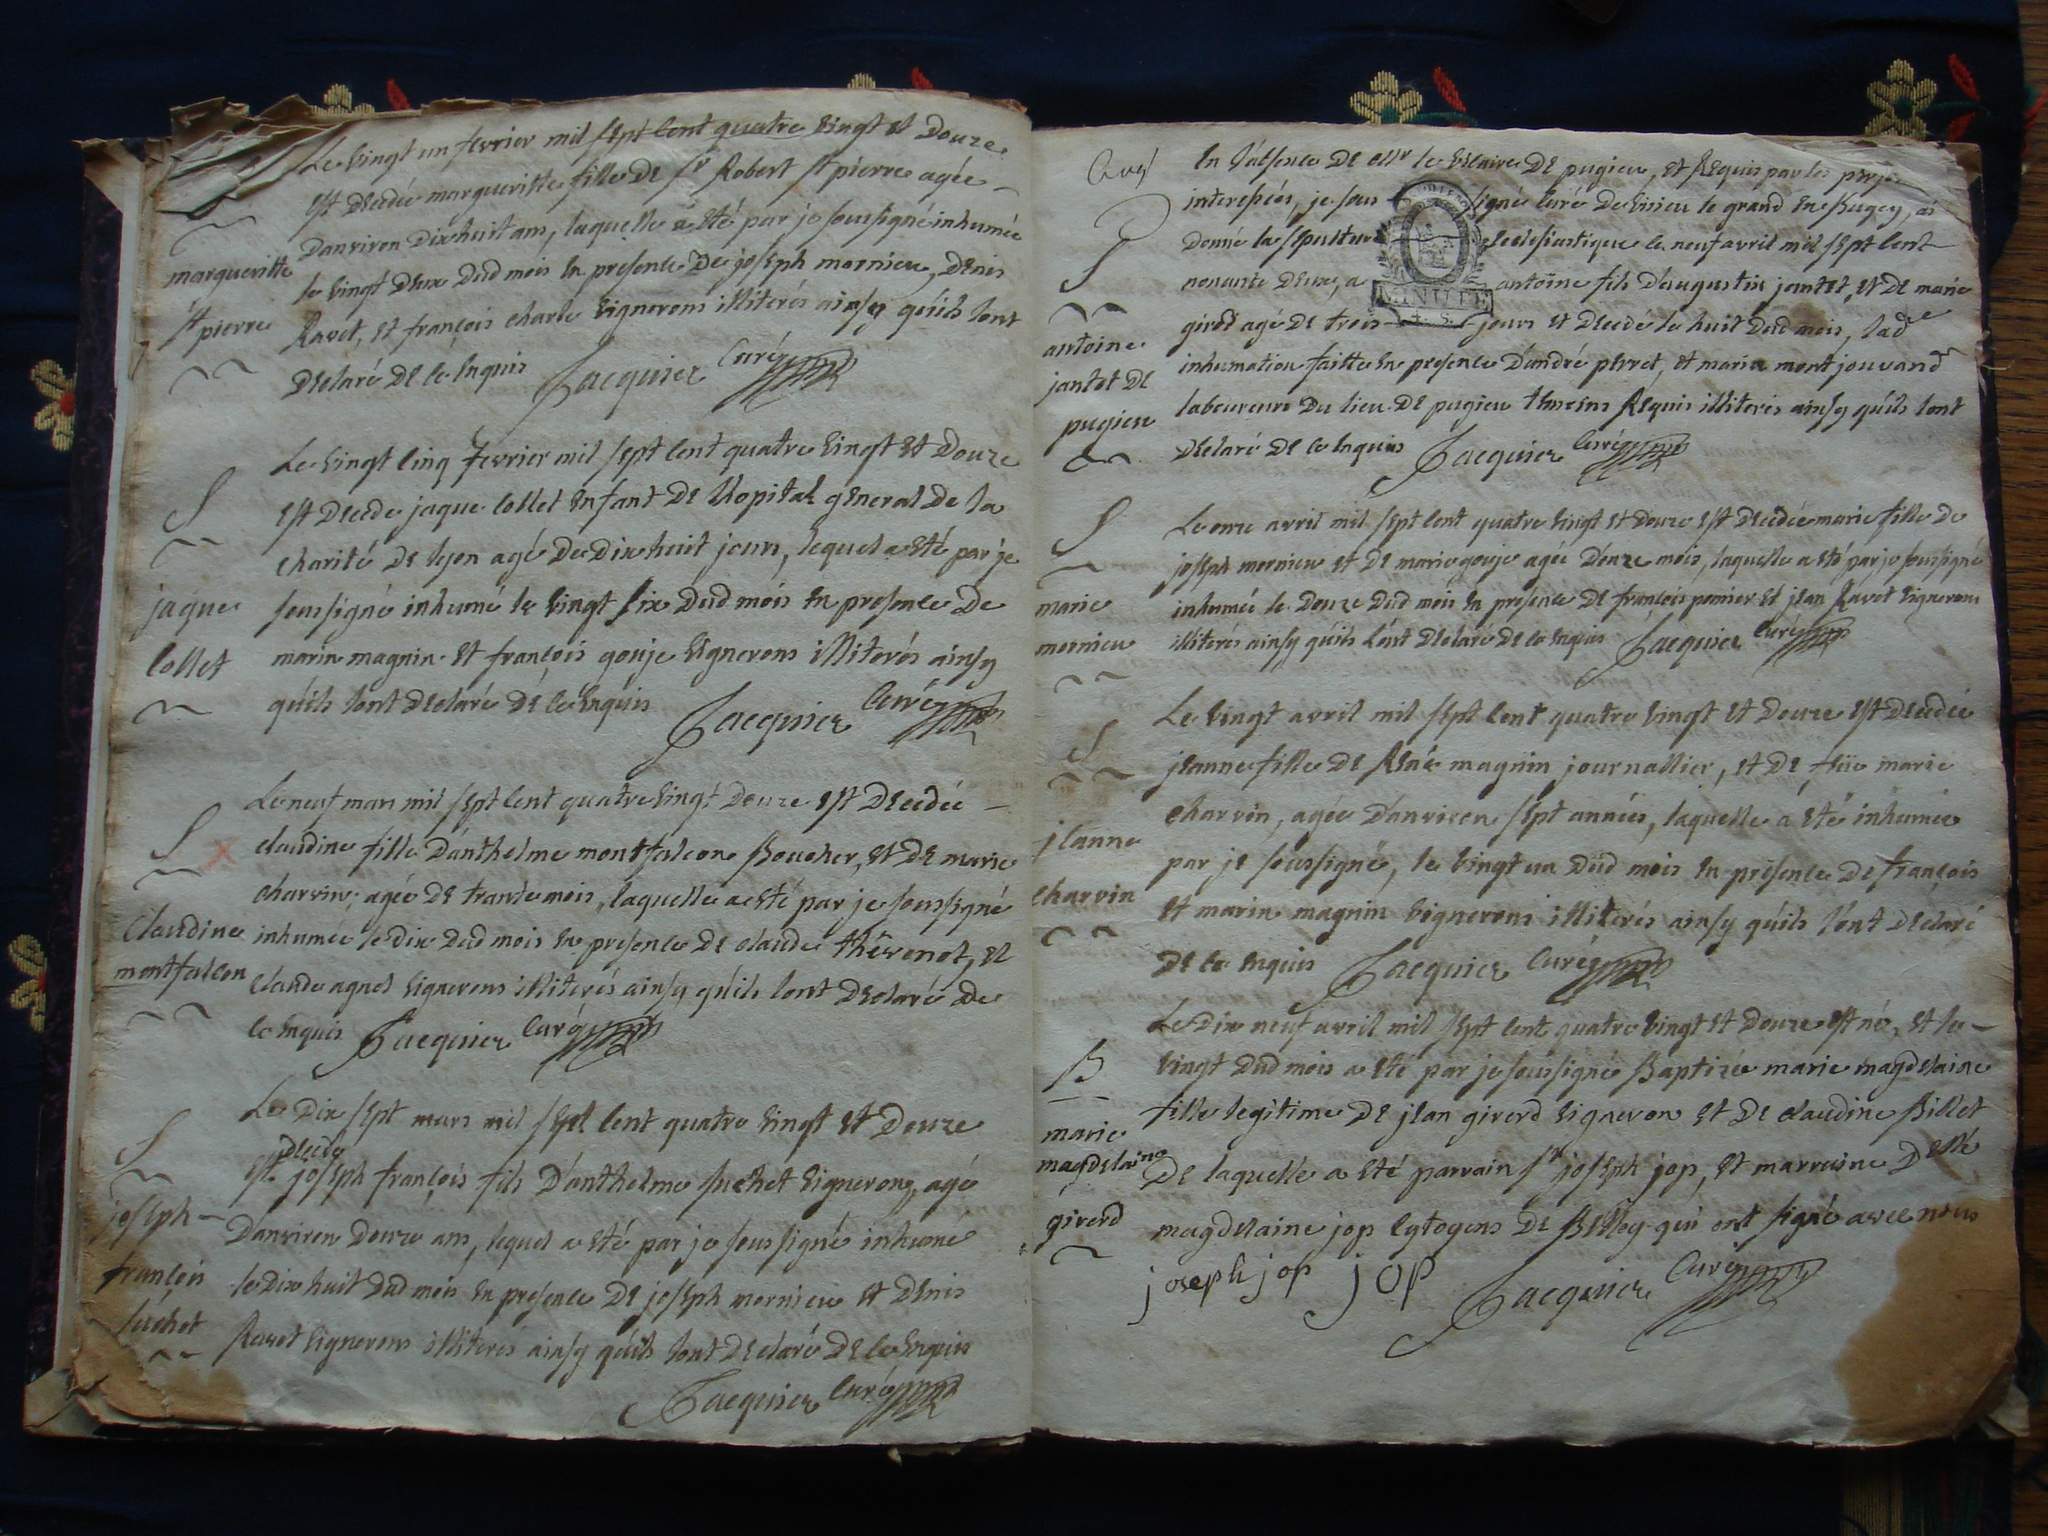 Le vingt un fevrier mil sept cent quatre vingt et douze
est decedée margueritte fille de sr Robert st pierre agée
danviron dix huit ans, laquelle a eté par je soussigné inhumée
le vingt deux dud mois en presence de joseph mornieu, denis
Ravet, et françois charle vignerons illiterés ainsy qúils lont
declaré de ce enquis Jacquier Curé
margueritte
st pierre
Le vingt cinq fevrier mil sept cent quatre vingt et douze
est decede jaque collet enfant de lhopital general de la
charité de lyon agé de dix huit jours, lequel a eté par je
soussigné inhumé le vingt six dud mois en presence de
marin magnin et françois gouje vignerons illiterés ainsy
qúils lont declaré de ce enquis Jacquier Curé
S
jaque
collet
Le neuf mars mil sept cent quatre vingt douze est decedée
claudine fille d'anthelme montfalcon Boucher, et de marie
charvin, agée de trante mois, laquelle a eté par je soussigné
inhumée le dix dud mois en presence de claude thevenot, et
claude agnel vignerons illiterés ainsy qúils lont declaré de
ce enquis Jacquier Curé
S
Claudine
montfalcon
Le dix sept mars mil sept cent quatre vingt et douze
decede
est joseph françois fils D'anthelme suchet vigneron, agé
Danviron douze ans, lequel a eté par je soussigné inhumé
le dix huit dud mois en presence de joseph mornieu et denis
Ravet vignerons illiterés ainsy qúils lont declaré de ce enquis
Jacquier Curé
S
joseph
françois
suchet
En l'absence de le vicaire de pugieu, et Requis par les
interessées, je sous signé Curé de virieu le grand en Bugey, ai
donné la sepulture ecclesiastique le neuf avril mil sept cent
nonante deux, a antoine fils d'augustin jantet, et de marie
girod agé de trois jours et decedé le huit dud mois, lade
inhumation faitte en presence d'andré perret, et marin montjouvand
laboureurs du lieu de pugieu temoins Requis illiterés ainsy qúils lont
declaré de ce enquis Jacquier Curé
MINUTE
4. S.
S
antoine
jantet de
pugieu
Le onze avril mil sept cent quatre vingt et douze est decedée marie fille de
joseph mornieu et de marie gouje agée d'onze mois, laquelle a eté par je soussigné
inhumée le douze dud mois en presence de françois pornier et jean Ravet vignerons
illiterés ainsy qúils lónt declaré de ce enquis Jacquier Curé
S
marie
mornieu
Le vingt avril mil sept cent quatre vingt et douze est decedée
jeanne fille de René magnin journallier, et de füe marie
charvin, agée d'anviron sept années, laquelle a eté inhumée
par je soussigné, le vingt un dud mois en presence de françois
et marin magnin vignerons illiterés ainsy qúils lónt declaré
de ce enquis Jacquier Curé
S
jeanne
charvin
Le dix neuf avril mil sept cent quatre vingt et douze est née, et le
vingt dud mois a eté par je soussigné Baptizée marie magdelaine
fille legitime de jean girerd vigneron et de claudine Billet
de laquelle a eté parrain sr joseph jop, et marraine Delle
magdelaine jop cytoyens de Belley qui ont signé avec nous
joseph jop jop Jacquier Curé
B
marie
magdelaine
girerd